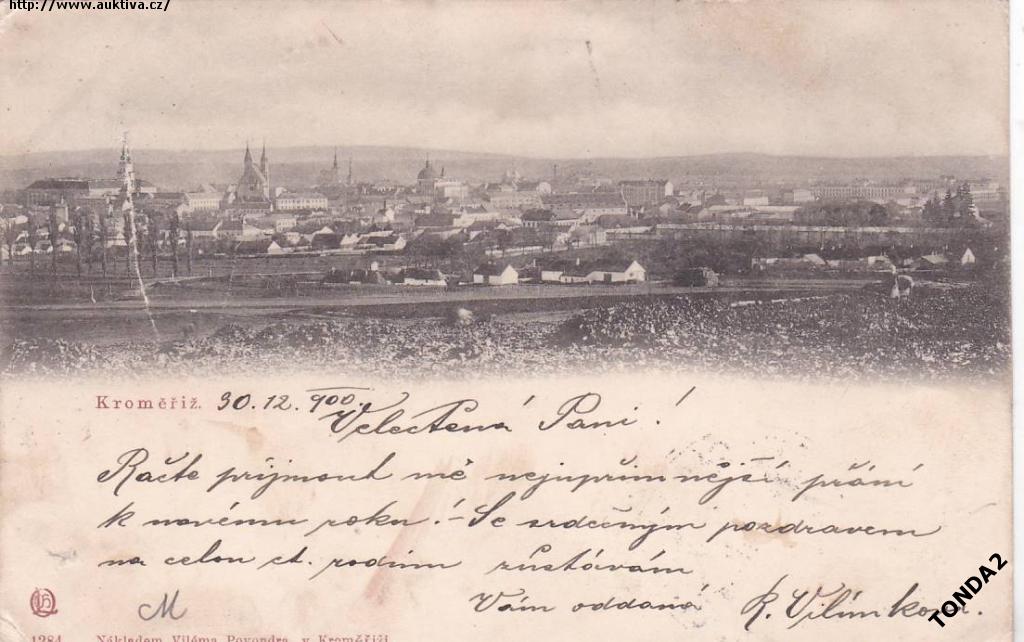 http://www.auktiva.cz/
Kroměřiž. 30.12.900.
Velectěná Paní!
Račte přijmout mé nejupřímnější přání
k novému roku! – Se srdečným pozdravem
na celou ct. rodinu zůstávám
Vám oddaná
M
1284 Nákladem Viléma Povondra, v Kroměříži
TONDA2